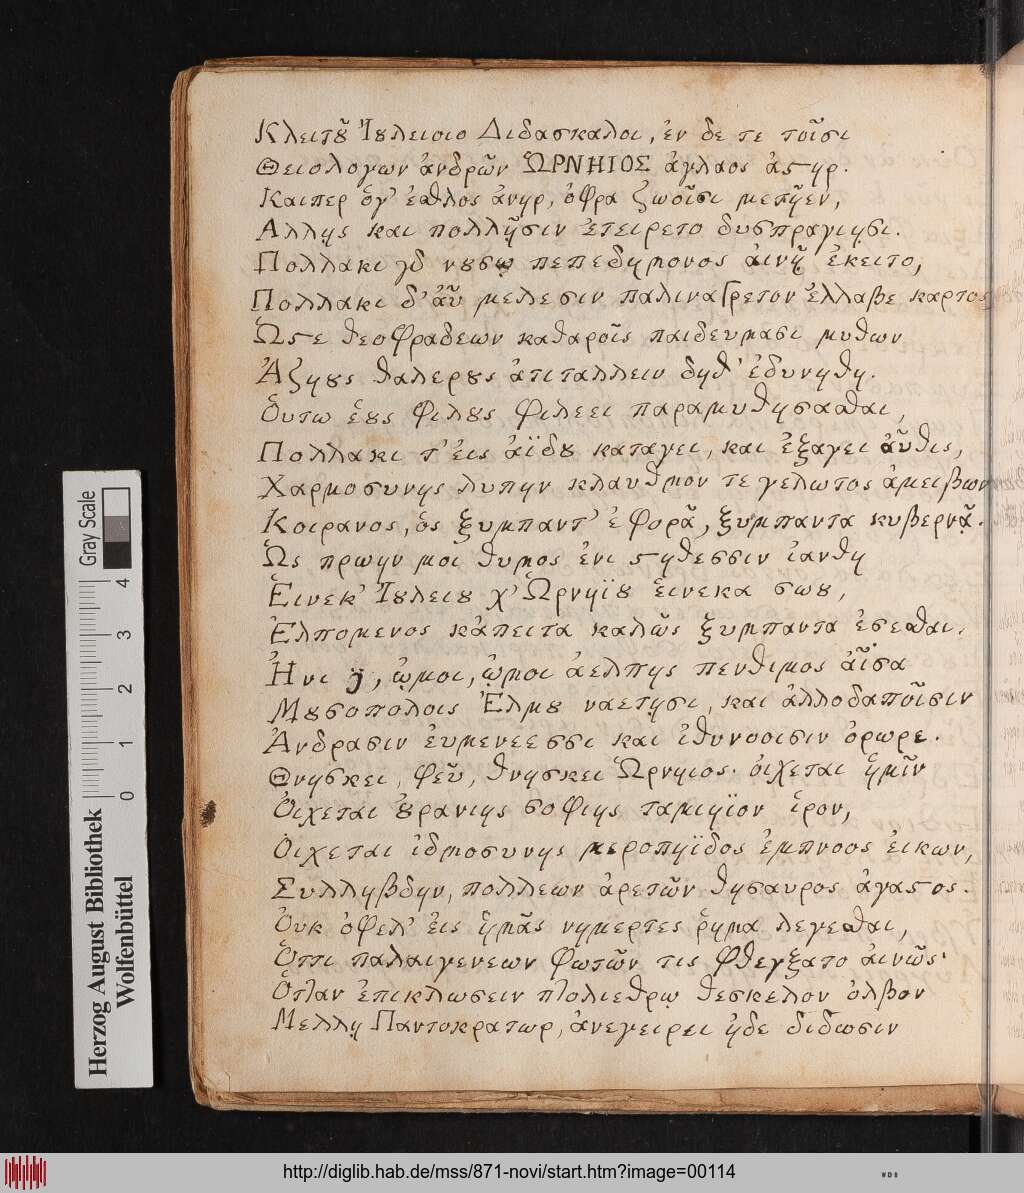 Κλειτοῦ Ἰουλειοιο Διδασκαλοι, ἐν δε τε τοῖσι
Θειολογων ἀνδρῶν ὩΡΝΗΙΟΣ ἀγλαος ἀστηρ.
Καιπερ ὅγ' ἐσθλος ἀνηρ, ὀφρα ζωοῖσι μετῆεν,
Αλλῃς και πολλῇσιν ἐτειρετο δυσπραγιῃσι.
Πολλακι γδ νουσῳ πεπεδημονος αἰνῇ ἐκειτο,
Πολλακι δ' αὖ μελεσιν παλιναγρετον ἐλλαβε καρτος
Ὥστε θεοφραδεων καθαροῖς παιδευμασι μυθων
Ἀζηους θαλερους ἀτιταλλειν δηθ' ἐδυνηθη.
Οὕτω ἑους φιλους φιλεει παραμυθησασθαι,
Πολλακι τ' εἰς ἀϊδου καταγει, και ἐξαγει αὖθις,
Χαρμοσυνης λυπην κλαυθμον τε γελωτος ἀμειβων
Κοιρανος, ὁς ξυμπαντ' ἐφορᾷ, ξυμπαντα κυβερνᾷ.
Ὣς πρωην μοι θυμος ἐνι στηθεσσιν ἰανθη
Εἵνεκ' Ἰουλειου χ' Ὡρνηϊου εἵνεκα σωου,
Ἐλπομενος κἀπειτα καλῶς ξυμπαντα ἐσεσθαι.
Ἠνι , ᾠμοι, ᾠμοι ἀελπης πενθιμος αἶσα
Μουσοπολοις Ἑλμου ναετῃσι, και ἀλλοδαποῖσιν
Ἀνδρασιν εὐμενεεσσι και ἰθυνοοισιν ὀρωρε.
Θνησκει, φεῦ, θνησκει Ὡρνηιος· οἰχεται ἡμῖν
Οἰχεται οὐρανιης σοφιης ταμιηϊον ἱρον,
Οἰχεται ἰδμοσυνης μεροπηϊδος ἐμπνοος εἰκων,
Συλληβδην, πολλεων ἀρετῶν θησαυρος ἀγαστος.
Οὐκ ὀφελ' εἰς ἡμᾶς νημερτες ῥημα λεγεσθαι,
Ὅττι παλαιγενεων φωτῶν τις φθεγξατο αἰνῶς·
Ὅταν ἐπικλωσειν πτολιεθρῳ θεσκελον ὀλβον
Μελλῃ Παντοκρατωρ, ἀνεγειρει ἠδε διδωσιν
Gray Scale
0 1 2 3 4
Herzog August Bibliothek
Wolfenbüttel
http://diglib.hab.de/mss/871-novi/start.htm?image=00114